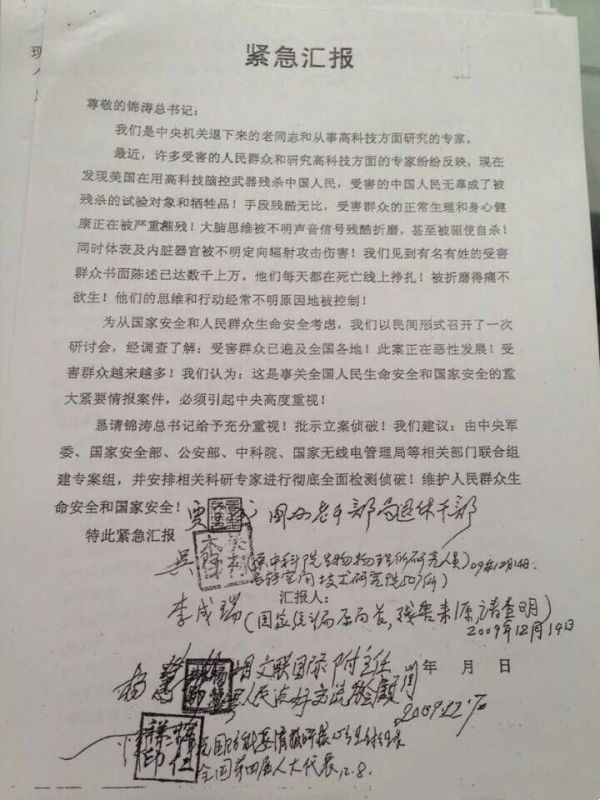 现
紧急汇报
尊敬的锦涛总书记：
我们是中央机关退下来的老同志和从事高科技方面研究的专家。
最近，许多受害的人民群众和研究高科技方面的专家纷纷反映，现在
发现美国在用高科技脑控武器残杀中国人民，受害的中国人民无辜成了被
残杀的试验对象和牺牲品！手段残酷无比，受害群众的正常生理和身心健
康正在被严重摧残！大脑思维被不明声音信号残酷折磨，甚至被驱使自杀！
同时体表及内脏器官被不明定向辐射攻击伤害！我们见到有名有姓的受害
群众书面陈述已达数千上万。他们每天都在死亡线上挣扎！被折磨得痛不
欲生！他们的思维和行动经常不明原因地被控制！
为从国家安全和人民群众生命安全考虑，我们以民间形式召开了一次
研讨会，经调查了解：受害群众已遍及全国各地！此案正在恶性发展！受
害群众越来越多！我们认为：这是事关全国人民生命安全和国家安全的重
大紧要情报案件，必须引起中央高度重视！
恳请锦涛总书记给予充分重视！批示立案侦破！我们建议：由中央军
委、国家安全部、公安部、中科院、国家无线电管理局等相关部门联合组
建专案组，并安排相关科研专家进行彻底全面检测侦破！维护人民群众生
命安全和国家安全！
贾 老干部局退休干部
特此紧急汇报
吴 (原中科院生物物理所研究人员) 09年12月14日.
空间技术研究院507所)
汇报人：
李成瑞(国家统计局原局长, 残害来源请查明)
2009年12月14日
杨 文联国际 主任
年 月 日
2009.12.
全国第四届人大代表 12.8.